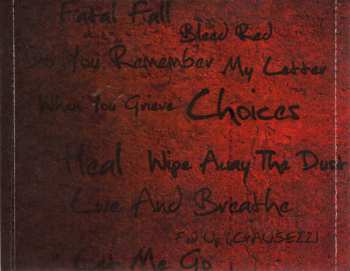 Fatal Fall
Bleed Red
You Remember My Letter
When You Grieve Choices
Heal Wipe Away The Dust
Live And Breathe
Me Go